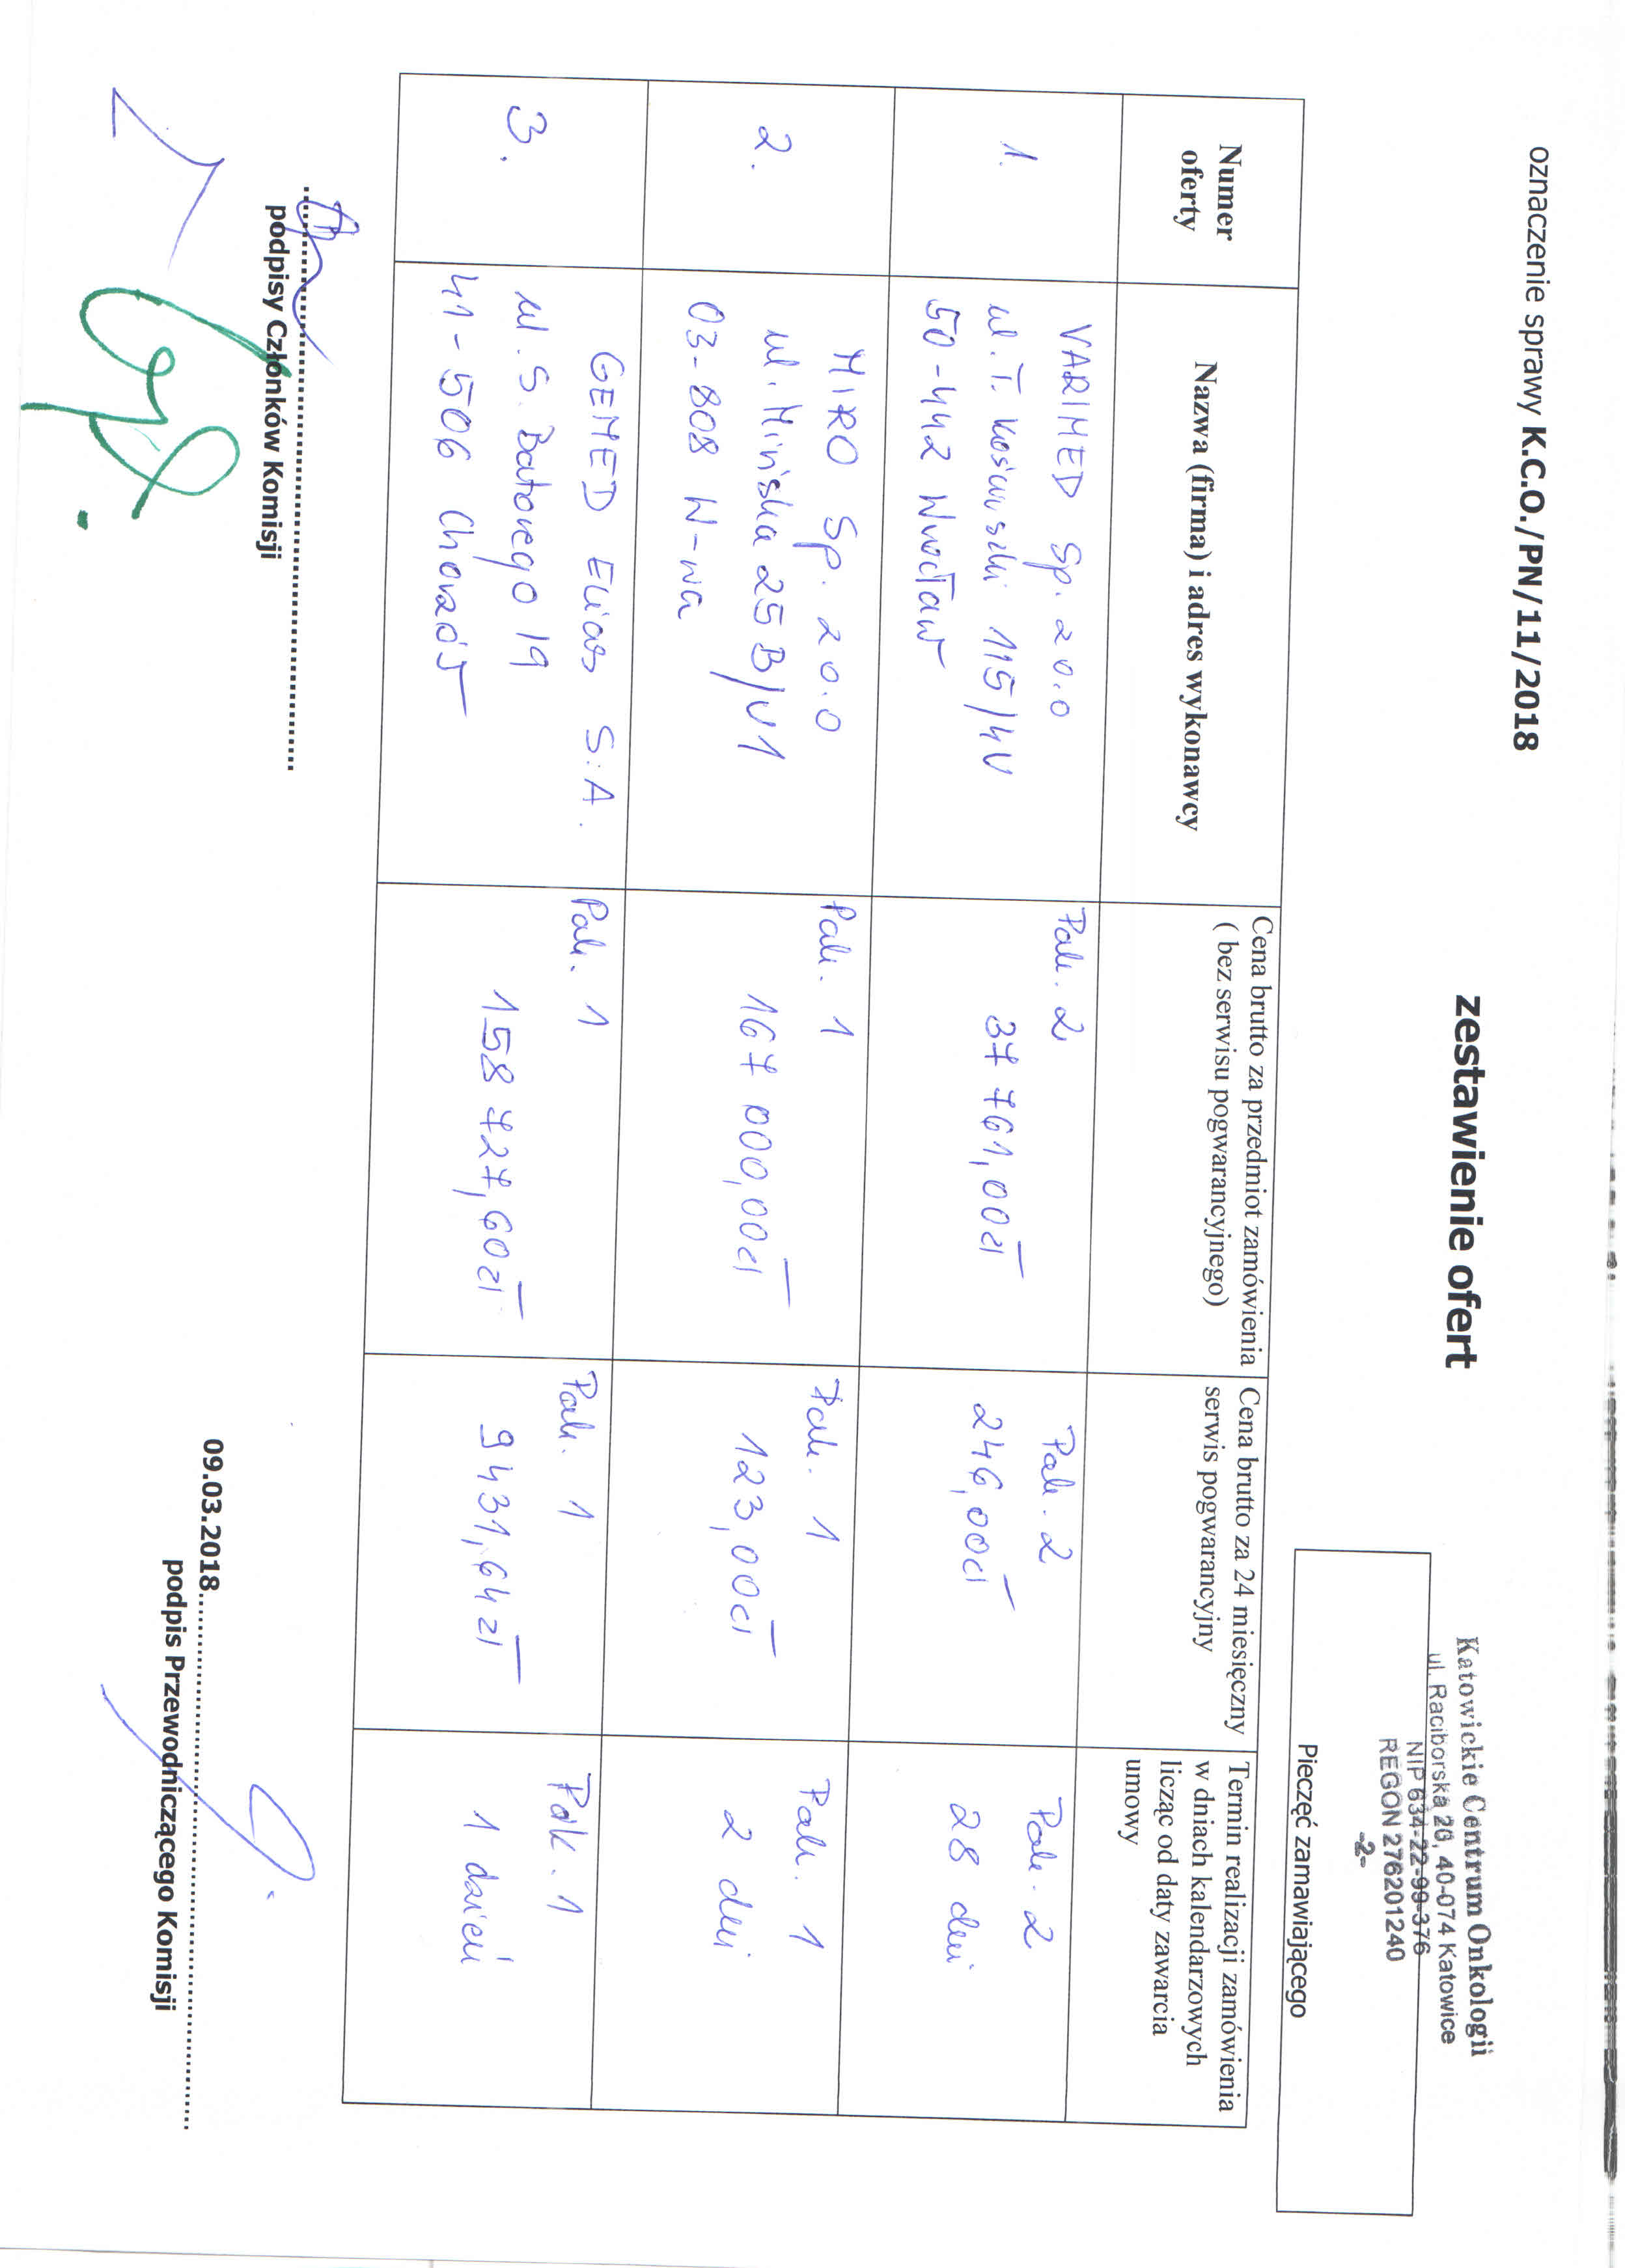 oznaczenie sprawy K.C.O./PN/11/2018
zestawienie ofert
Katowickie Centrum Onkologii
ul. Raciborska 26, 40-074 Katowice
NIP 634-22-99-376
REGON 276201240
-2-
Pieczęć zamawiającego
Numer
oferty
Nazwa (firma) i adres wykonawcy
Cena brutto za przedmiot zamówienia
( bez serwisu pogwarancyjnego)
Cena brutto za 24 miesięczny
serwis pogwarancyjny
Termin realizacji zamówienia
w dniach kalendarzowych
licząc od daty zawarcia
umowy
1.
VARIMED Sp. z o.o
ul. T. Kościuszki 115/4U
50-442 Wrocław
Pak. 2
37 761,00zł
Pak. 2
246,00zł
Pak. 2
28 dni
2.
MIRO Sp. z o.o
ul. Mińska 25B/U1
03-808 W-wa
Pak. 1
167 000,00zł
Pak. 1
123,00zł
Pak. 1
2 dni
3.
GEMED Elias S.A.
ul. S. Batorego 19
41-506 Chorzów
Pak. 1
158 727,60zł
Pak. 1
9431,64zł
Pak. 1
1 dzień
podpisy Członków Komisji
09.03.2018
podpis Przewodniczącego Komisji